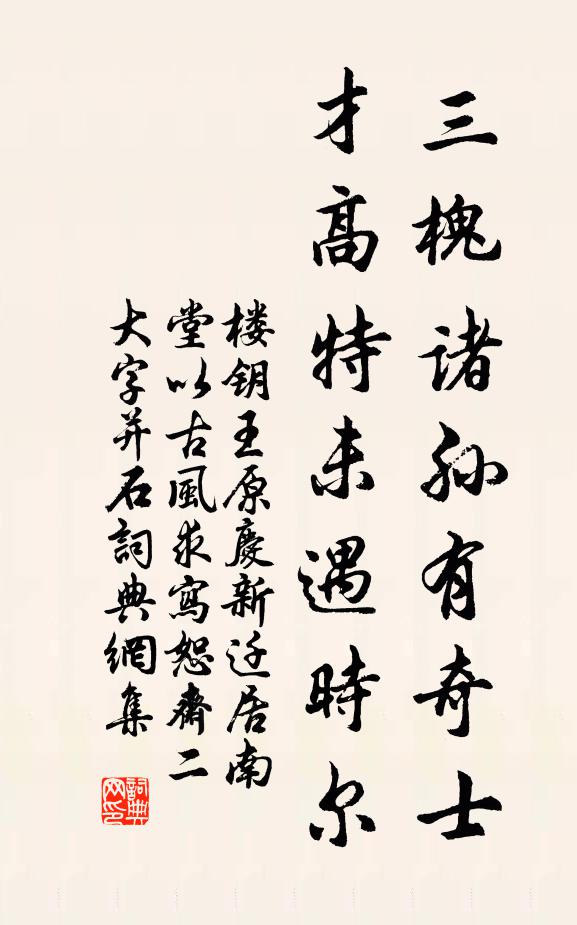 三槐诸孙有奇士
才高特未遇時尔
楼钥王原慶新迁居南
堂以古風求寫恕齋二
大字并石詞典網集
詞典网印